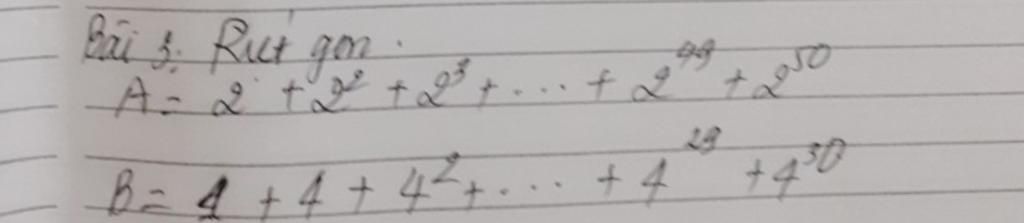 Bài 3: Rút gọn.
A = 2 + 2² + 2³ + ... + 2⁴⁹ + 2⁵⁰
B = 1 + 4 + 4² + ... + 4²⁹ + 4³⁰